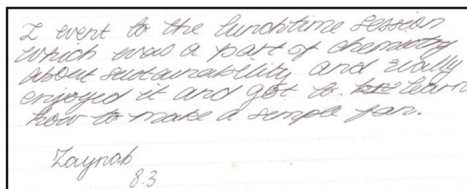 I went to the lunchtime session
which was a part of chemistry
about sustainability and really
enjoyed it and got to learn
how to make a simple fan.
Zaynab
8.3